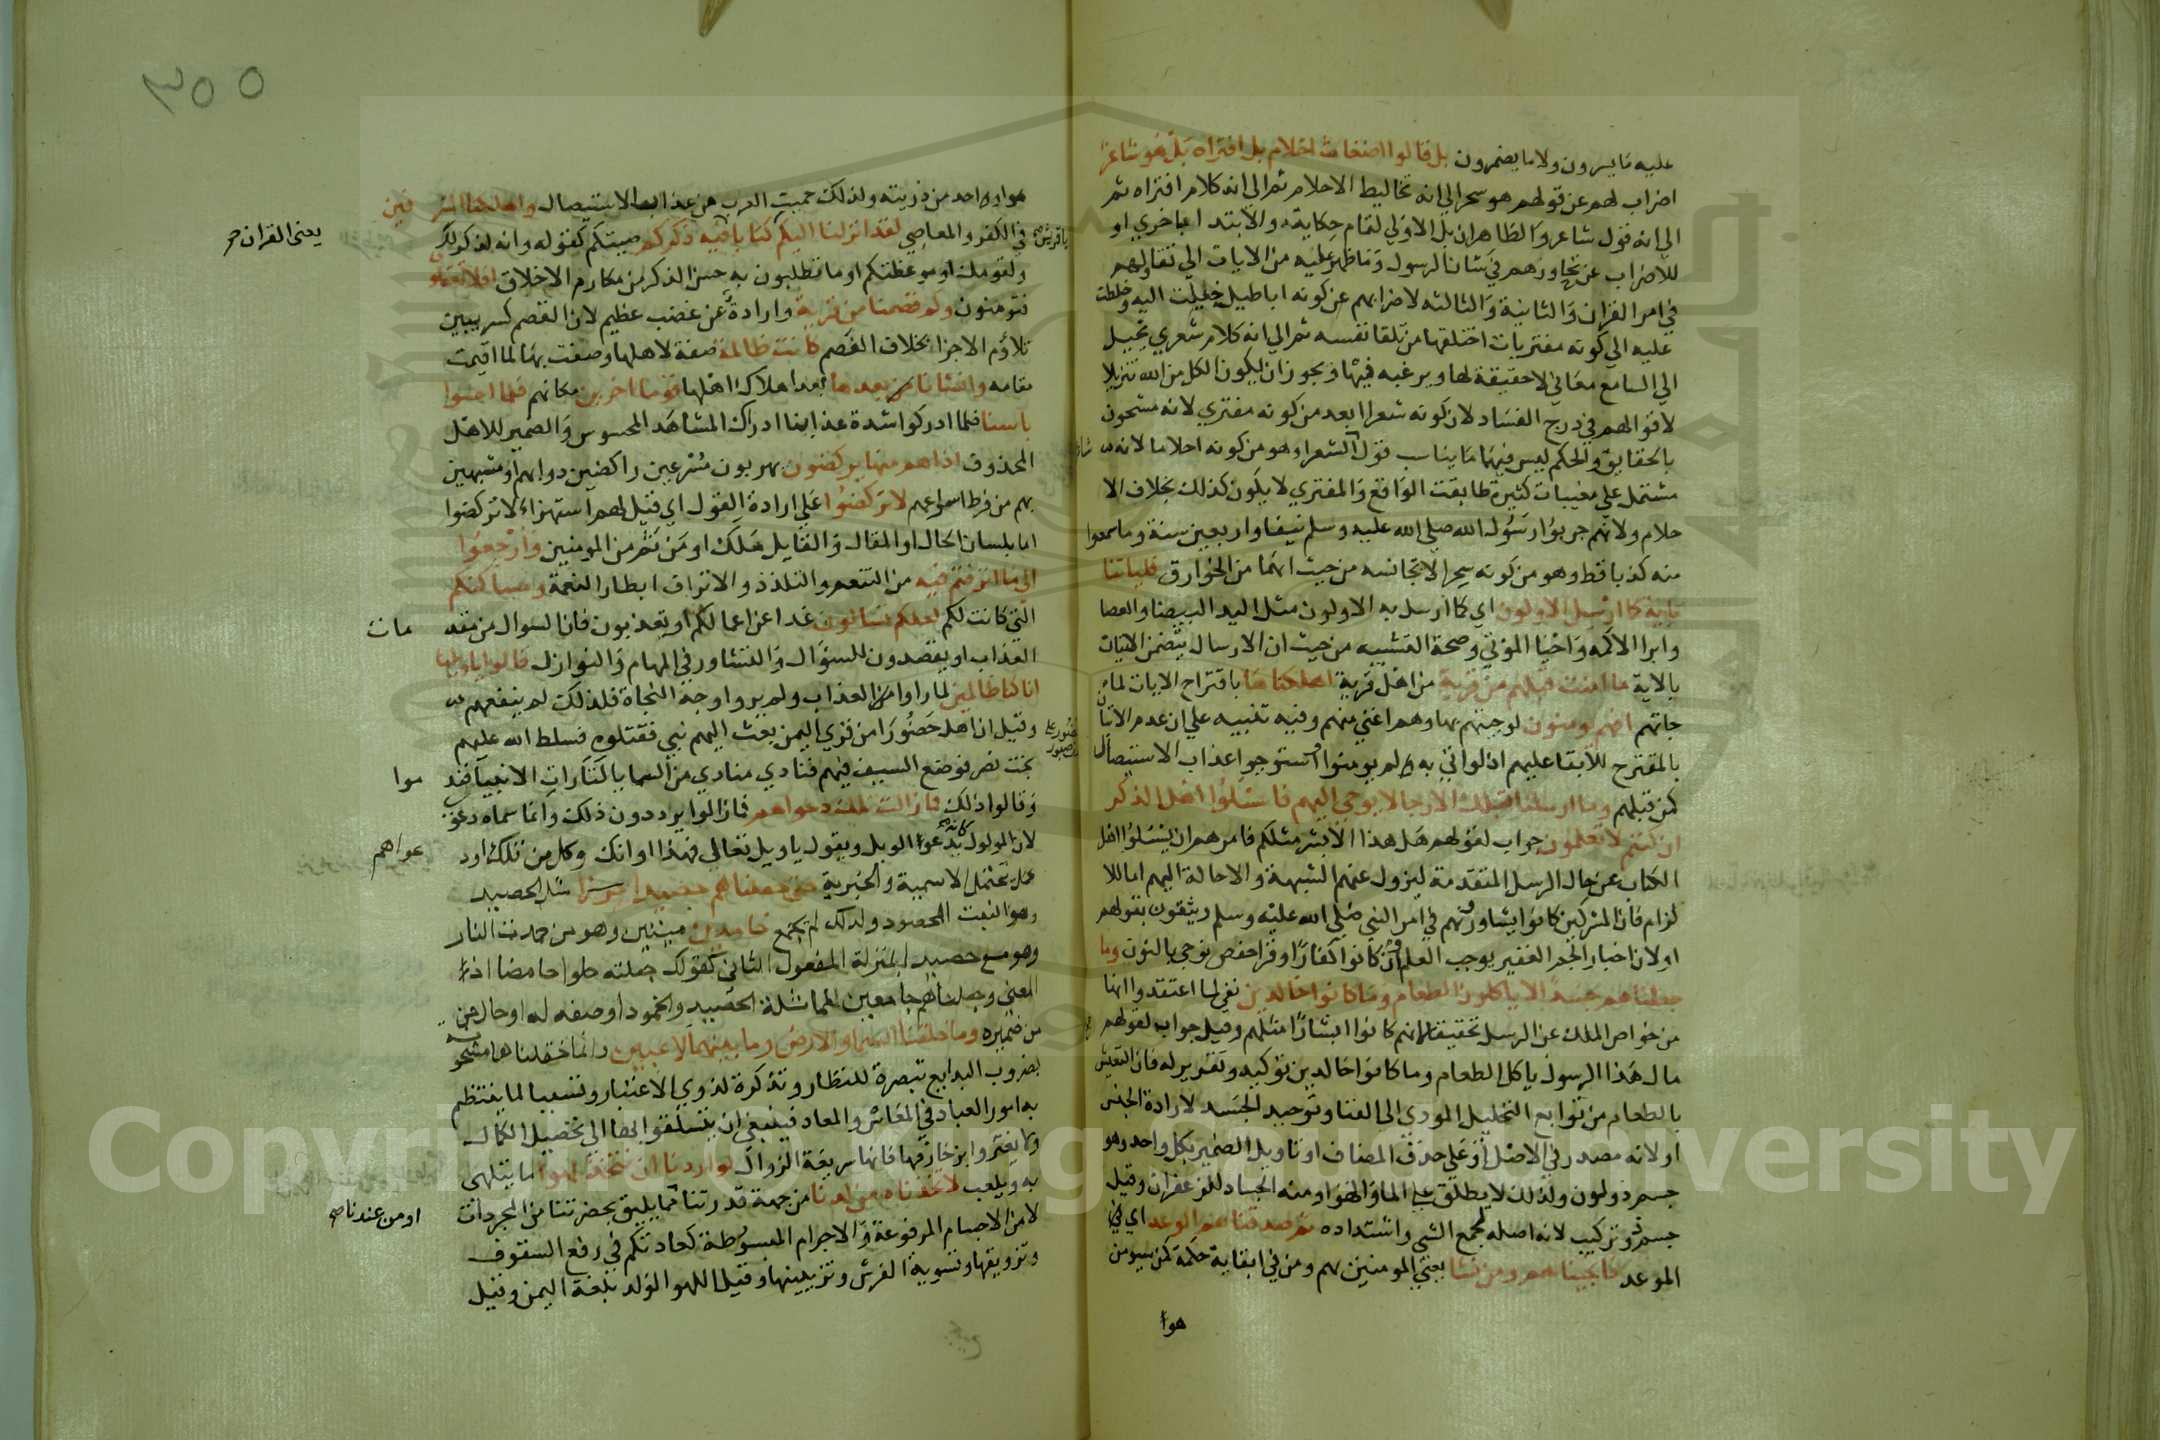 عليه ما يسرون ولا ما يضمرون بل قالوا اضغاث احلام بل افتراه بل هو شاعر
اضراب لهم عن قولهم هو سحر الي انه تخاليط الاحلام ثم الي انه كلام افتراه ثم
الي انه قول شاعر والظاهر ان بل الاولي لتمام حكاية والابتدا باخري او
للاضراب عن تحاورهم في شان الرسول وما ظهر عليه من الايات الي تقاولهم
في امر القران والثانية والثالثه لاضرابهم عن كونه اباطيل خيلت اليه وخلطت
عليه الي كونه مفتريات اختلقها من تلقا نفسه ثم الي انه كلام شعري يخيل
الي السامع معاني لا حقيقة لها ويرغبه فيها ويجوز ان يكون الكل من الله تنزيلا
لاقوالهم في درج الفساد لان كونه شعرا ابعد من كونه مفتري لانه مشحون
بالحقايق والحكم ليس فيها ما يناسب قول الشعرا وهو من كونه احلاما لانه
مشتمل علي مغيبات كثيرة طابقت الواقع والمفتري لا يكون كذلك بخلاف الا
حلام ولانهم جربوا رسول الله صلي الله عليه وسلم نيفا واربعين سنة وما سمعوا
منه كذبا قط وهو من كونه سحرا لانه تجانسه من حيث انهما من الخوارق فلياتنا
باية كما ارسل الاولون اي كما ارسل به الاولون مثل اليد البيضا والعصا
وابرا الاكمه واحيا الموتي وصحة التشبيه من حيث ان الارسال يتضمن الاتيان
بالاية ما امنت قبلهم من قرية من اهل قرية اهلكناها باقتراح الايات لما
جاتهم افهم يومنون لو جيتهم بها وهم اعتي منهم وفيه تنبيه علي ان عدم الاتيان
بالمقترح للابقا عليهم اذ لو اتي به ولم يومنوا استوجبوا عذاب الاستيصال
كمن قبلهم وما ارسلنا قبلك الا رجالا يوحي اليهم فاسئلوا اهل الذكر
ان كنتم لا تعلمون جواب لقولهم هل هذا الا بشر مثلكم فامرهم ان يسئلوا اهل
الكتاب عن حال الرسل المتقدمة ليزول عنهم الشبهة والاحالة اليهم اما للا
لزام فان المشركين كانوا يشاورونهم في امر النبي صلي الله عليه وسلم ويثقون بقولهم
او لان اخبار الجم الغفير يوجب العلم وان كانوا كفارا وقرا حفص نوحي بالنون وما
جعلناهم جسدا لا ياكلون الطعام وما كانوا خالدين نفي لما اعتقدوا انها
من خواص الملك عن الرسل تحقيقا لانهم كانوا ابشارا مثلهم وقيل جواب لقولهم
مال هذا الرسول ياكل الطعام وما كانوا خالدين توكيد وتقرير له فان التعيش
بالطعام من توابع التحليل المودي الي الفنا وتوحيد الجسد لارادة الجنس
او لانه مصدر في الاصل او علي حذف المضاف او تاويل الضمير بكل واحد وهو
جسم ذو لون ولذلك لا يطلق علي الما والهوا ومنه الجساد للزعفران وقيل
جسم ذو تركيب لانه اصله لجمع الشي واشتداده ثم صدقناهم الوعد اي في
الموعد فانجيناهم ومن نشا يعني المومنين بهم ومن في ابقاية حكمة كمن سيومن
هوا
٣٥٥
هو او واحد من ذريته ولذلك حميت العرب من عذاب الاستيصال واهلكنا المسرفين
في الكفر والمعاصي لقد انزلنا اليكم يا قريش كتابا فيه ذكركم صيتكم كقوله وانه لذكر لك
يعني القران صح
ولقومك او موعظتكم او ما تطلبون به حسن الذكر من مكارم الاخلاق افلا تعقلون
فتومنون وكم قصمنا من قرية واردة عن غضب عظيم لان القصم كسر يبين
تلاؤم الاجزا بخلاف الفصم كانت ظالمة صفة لاهلها وصفت بها لما اقيمت
مقامه وانشانا من بعدها بعد اهلاك اهلها قوما اخرين مكانهم فلما احسوا
باسنا فلما ادركوا شدة عذابنا ادراك المشاهد المحسوس والضمير للاهل
المحذوف اذا هم منها يركضون يهربون مسرعين راكضين دوابهم او مشبهين
بهم من فرط اسراعهم لا تركضوا علي ارادة القول اي قيل لهم استهزاء لا تركضوا
اما بلسان الحال او المقال والقايل ملك او من ثم من المومنين وارجعوا
الي ما اترفتم فيه من التنعم والتلذذ والاتراف ابطار النعمة ومساكنكم
التي كانت لكم لعلكم تسالون غدا عن اعمالكم او تعذبون فان السوال من مقد
مات
العذاب او يقصدون للسؤال والتشاور في المهام والنوازل قالوا يا ويلنا
انا كنا ظالمين لما راوا العذاب ولم يروا وجه النجاة فلذلك لم ينفعهم
وقيل ان اهل حضورا من قري اليمن بعث اليهم نبي فقتلوه فسلط الله عليهم
بخت نصر فوضع السيف فيهم فنادي منادي من السما يا لثارات الانبيا فند
موا
وقالوا ذلك فما زالت تلك دعواهم فما زالوا يرددون ذلك وانما سماه دعوي
لان المولول كانه يدعوا الويل ويقول يا ويل تعالي فهذا اوانك وكل من تلك ود
عواهم
تحتمل الاسمية والخبرية حتي جعلناهم حصيدا مثل الحصيد
وهو النبت المحصود ولذلك لم يجمع خامدين ميتين وهو من خمدت النار
وهو مع حصيد بمنزلة المفعول الثاني كقولك جعلته حلوا حامضا اذ
المعني وجعلناهم جامعين لمماثلة الحصيد والخمود او صفه له او حال من
من ضميره وما خلقنا السما والارض وما بينهما لاعبين وانما خلقناها مشحونة
بضروب البدايع تبصرة للنظار وتذكرة لذوي الاعتبار وتسبيبا لما ينتظم
به امور العباد في المعاش والمعاد فينبغي ان يتسلقوا بها الي تحصيل الكمال
ولا يغتروا بزخارفها فانها سريعة الزوال لو اردنا ان نتخذ لهوا ما يتلهي
به ويلعب لاتخذناه من لدنا من جهة قدرتنا مما يليق بحضرتنا من المجردات
او من عندنا صح
لا من الاجسام المرفوعة والاجرام المبسوطة كعادتكم في رفع السقوف
وتزويقها وتسوية الفرش وتزيينها وقيل اللهو الولد بلغة اليمن وقيل
Copyright © King Saud University